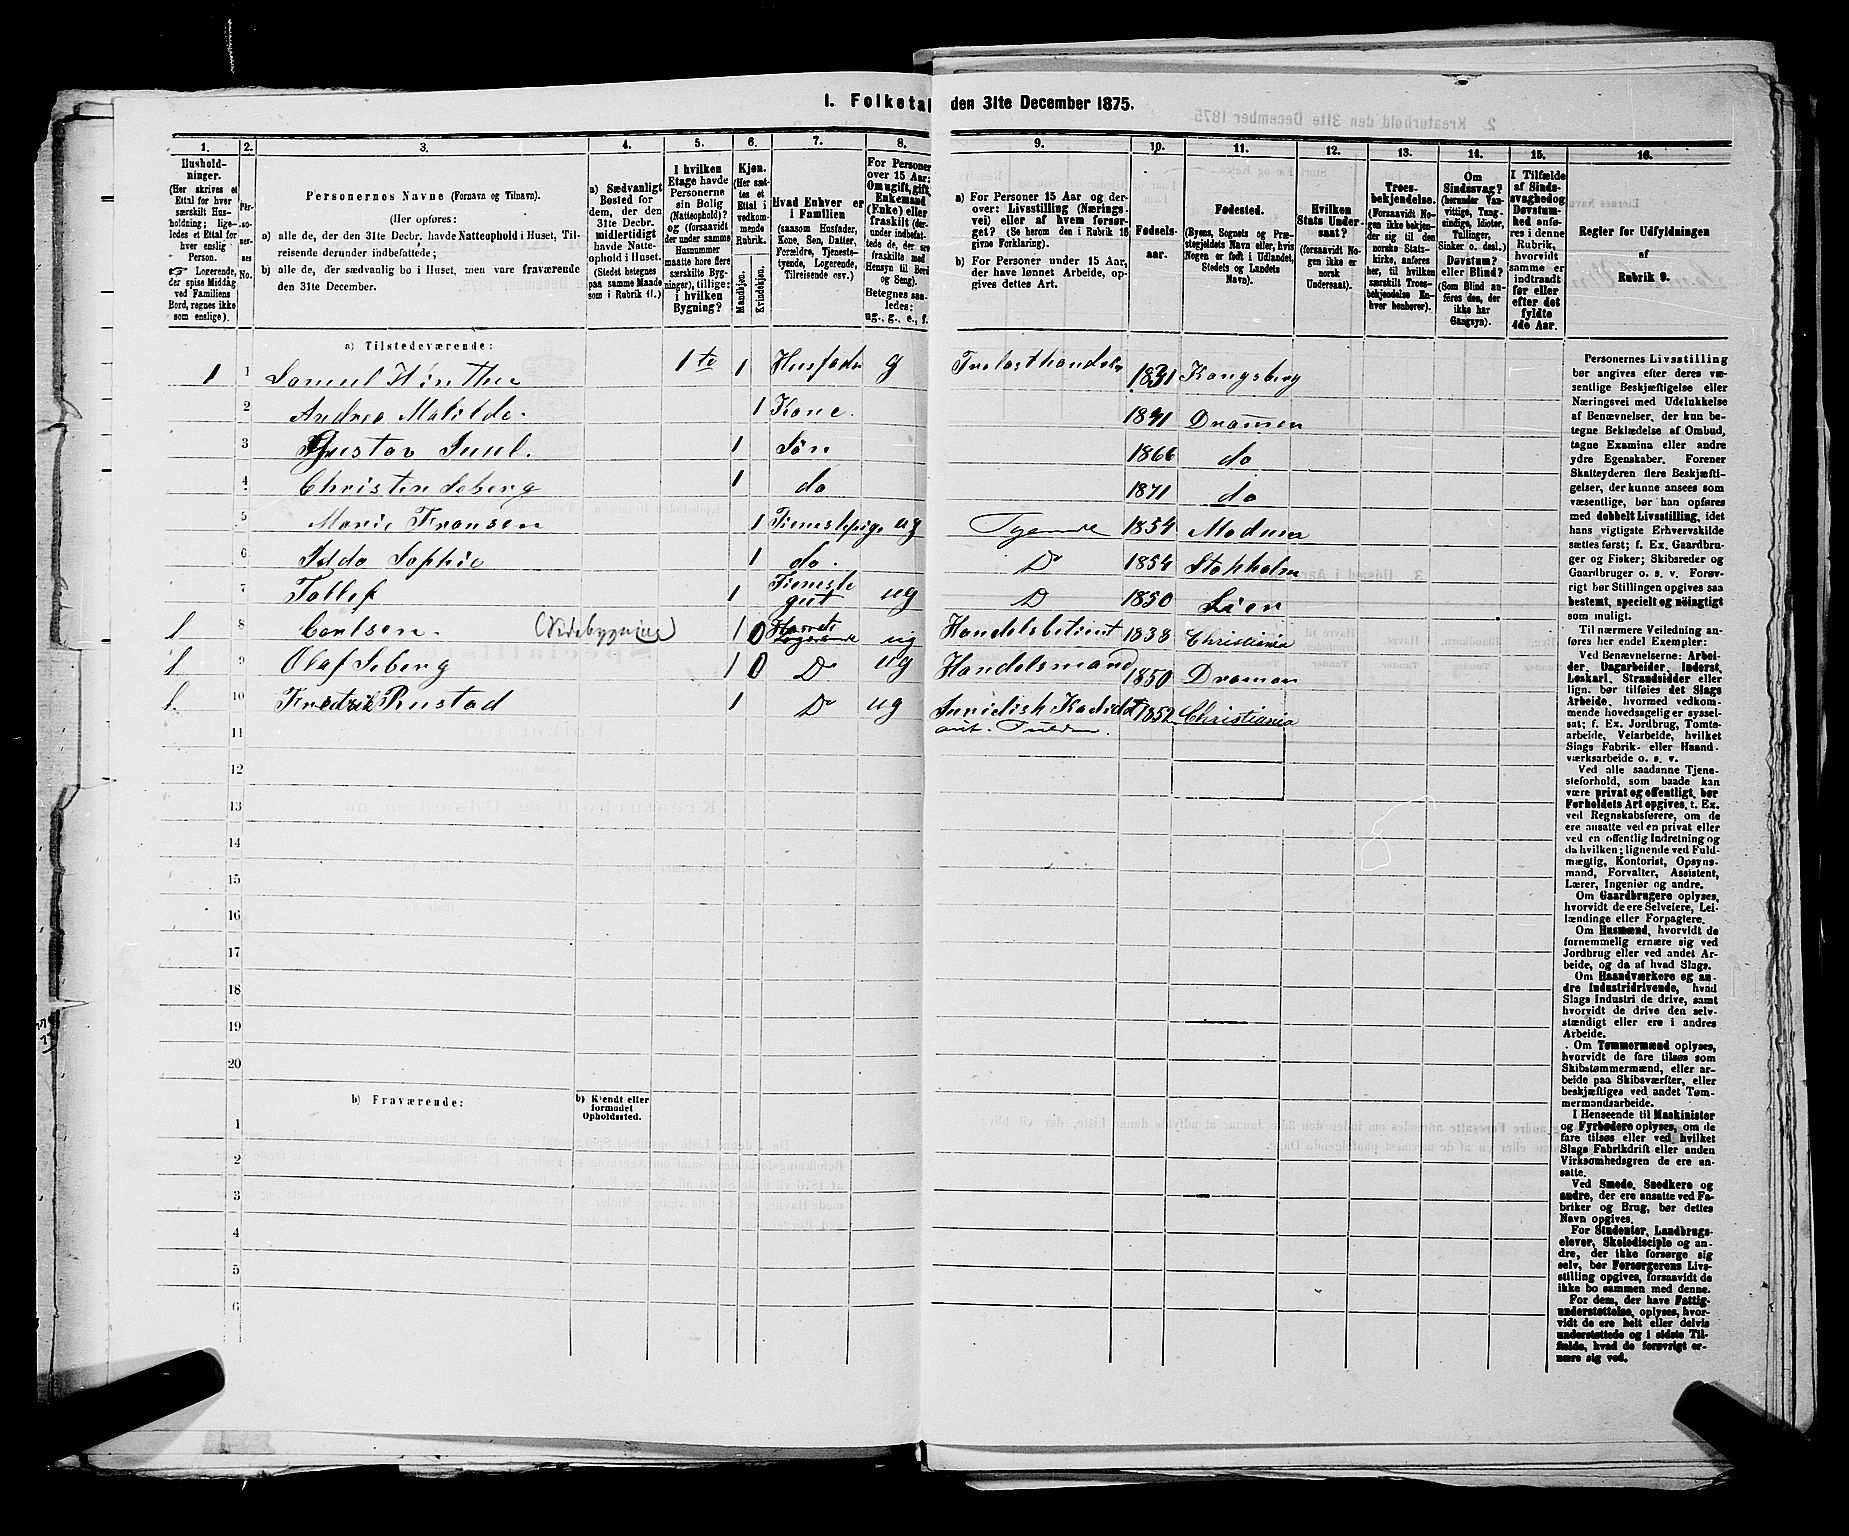 1. Folketal den 31te December 1875.
1. 2. 3. 4. 5. 6. 7. 8. 9. 10. 11. 12. 13. 14. 15. 16.
Hushold-
ninger.
(Her skrives et
Ettal for hver
særskilt Hus-
holdning; lige-
ledes et Ettal for
hver enslig
Person.
☞ Logerende,
der spise Middag
ved Familiens
Bord, regnes ikke
som enslige).
Per-
soner-
nes
No.
Personernes Navne (Fornavn og Tilnavn).
(Her opføres:
a) alle de, der den 31te Decbr. havde Natteophold i Huset, Til-
reisende derunder indbefattede;
b) alle de, der sædvanlig bo i Huset, men vare fraværende
den 31te December.
a) Sædvanligt
Bosted for
dem, der den
31te Decbr.
midlertidigt
havde Natte-
ophold i Huset.
(Stedet betegnes
paa samme Maade
som i Rubrik 11.)
I hvilken
Etage havde
Personerne
sin Bolig
(Natteophold)?
og (forsaavidt
der under samme
Husnummer
maatte høre flere
særskilte Byg-
ninger), tillige:
i hvilken
Bygning?
Kjøn.
(Her sæt-
tes et
Ettal i
vedkom-
mende
Rubrik.
Mandkjøn.
Kvindekjøn.
Hvad Enhver er
i Familien
(saasom Husfader,
Kone, Søn, Datter,
Forældre, Tjeneste-
tyende, Logerende,
Tilreisende osv.)
For Personer
over 15 Aar:
Om ugift, gift,
Enkemand
(Enke) eller
fraskilt
(derunder indbefat-
tede de, der ere
fraskilte med
Hensyn til Bord
og Seng).
Betegnes saa-
ledes:
ug., g., e., f.
a) For Personer 15 Aar og der-
over: Livsstilling (Nærings-
vei) eller af hvem forsør-
get? (Se herom den i Rubrik 16
givne Forklaring).
b) For Personer under 15 Aar,
der have lønnet Arbeide, op-
gives dettes Art.
Fødsels-
aar.
Fødested.
(Byens, Sognets og Præ-
stegjeldets Navn eller, hvis
Nogen er født i Udlandet,
Stedets og Landets
Navn).
Hvilken
Stats Under-
saat?
(forsaavidt No-
gen ikke er
norsk
Undersaat).
Troes-
bekjendelse.
(Forsaavidt No-
gen ikke beken-
der sig til den
norske Stats-
kirke, anføres
her, til hvilken
særskilt Troes-
bekjendelse En-
hver henhører).
Om
Sindssvag?
(herunder Van-
vittige, Tung-
sindige, Idioter,
Tullinger,
Sinker o. desl.)
Døvstum?
eller Blind?
(Som Blind an-
føres den, der
ikke har
Gangsyn).
I Tilfælde
af Sinds-
svaghed og
Døvstum-
hed anfø-
res i denne
Rubrik,
hvorvidt
samme er
indtraadt
før eller
efter det
fyldte
4de Aar.
Regler for Udfyldningen
af
Rubrik 9.
a) Tilstedeværende:
1 1 1te 1 Husfader g Trelasthandeler 1831 Kongsberg
2 Andrea Matilde. 1 Kone. 1841 Dramen
3 Gustav Juul. 1 Søn 1866 do
4 Christen Seberg 1 do 1871 do
5 Marie Fransen 1 Tienestepige ug Tyende 1854 Modum
6 Idda Sophie 1 do. Do 1854 Stokholm
7 Tollef 1 Tieneste gut ug D 1850 Lier
1 8 Carlsen. (Sidebygning) 1 0 Logerende ug Handelsbetient 1838 Christiania
1 9 Olaf Seberg 1 0 Do ug Handelsmand 1850 Dramen
1. 10 Fredrik Rustad 1 Do ug Juridisk Kadidat 1852 Christiania
11
12
13
14
15
16
17
18
19
20
b) Fraværende:
b) Kjendt eller
formodet
Opholdssted.
1
2
3
4
5
6
Personernes Livsstilling
bør angives efter deres væ-
sentlige Beskjæftigelse eller
Næringsvei med Udelukkelse
af Benævnelser, der kun be-
tegne Beklædelse af Ombud,
tagne Examina eller andre
ydre Egenskaber. Forener
Skatteyderen flere Beskjæfti-
gelser, der kunne ansees som
væsentlige, bør han opføres
med dobbelt Livsstilling, idet
hans vigtigste Erhvervskilde
sættes først; f. Ex. Gaardbru-
ger og Fisker; Skibsreder og
Gaardbruger o. s. v. Forøv-
rigt bør Stillingen opgives saa
bestemt, specielt og nöiagtigt
som muligt.
Til nærmere Veiledning an-
føres her endel Exempler:
Ved Benævnelserne: Arbei-
der, Dagarbeider, Inderst,
Løskarl, Strandsidder eller
lign. bør tilføies det Slags
Arbeide, hvormed vedkom-
mende hovedsagelig er syssel-
sat; f. Ex. Jordbrug, Tomte-
arbeide, Veiarbeide, hvilket
Slags Fabrik- eller Haand-
værksarbeide o. s. v.
Ved alle saadanne Tjene-
steforhold, som baade kan
være privat og offentligt, bør
Forholdets Art opgives, t. Ex.
ved Regnskabsførere, om de
ere ansatte ved en privat eller
ved en offentlig Indretning og
da hvilken; lignende ved Fuld-
mægtig, Kontorist, Opsyns-
mand, Forvalter, Assistent,
Lærer, Ingeniør og andre.
Om Gaardbrugere oplyses,
hvorvidt de ere Selveiere, Lei-
lændinge eller Forpagtere.
Om Husmænd, hvorvidt de
fornemmelig ernære sig ved
Jordbrug eller ved andet Ar-
beide, og da af hvad Slags.
Om Haandværkere og an-
dre Industridrivende, hvad
Slags Industri de drive, samt
hvorvidt de drive den selv-
stændigt eller ere i andres
Arbeide.
Om Tømmermænd oplyses,
hvorvidt de fare tilsøs som
Skibstømmermænd, eller ar-
beide paa Skibsværfter, eller
beskjæftiges ved andet Tøm-
mermandsarbeide.
I Henseende til Maskinister
og Fyrbødere oplyses, om de
fare tilsøs eller ved hvilket
Slags Fabrikdrift eller anden
Virksomhedsgren de ere an-
satte.
Ved Smede, Snedkere og
andre, der ere ansatte ved Fa-
briker og Brug, bør dettes
Navn opgives.
For Studenter, Landbrugs-
elever, Skoledisciple og an-
dre, der ikke forsørge sig
selv, bør Forsørgerens Livs-
stilling opgives, forsaavidt de
ikke bo sammen med denne.
For dem, der have Fattig-
understøttelse, oplyses, hvor-
vidt de ere helt eller delvis
understøttede og i sidste Til-
fælde, hvad de forøvrigt er-
nære sig ved.